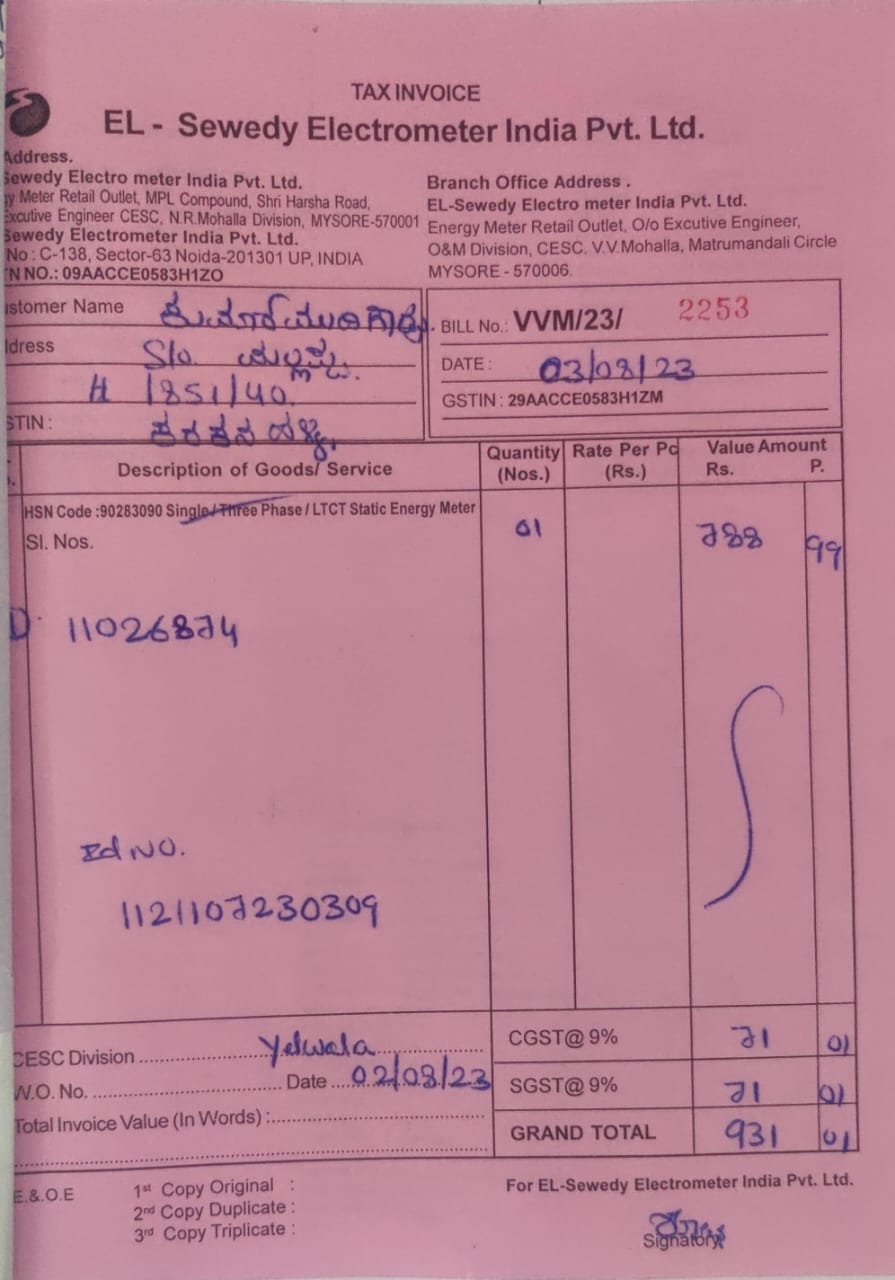 TAX INVOICE
EL - Sewedy Electrometer India Pvt. Ltd.
Address.
Sewedy Electro meter India Pvt. Ltd.
gy Meter Retail Outlet, MPL Compound, Shri Harsha Road,
Excutive Engineer CESC, N.R.Mohalla Division, MYSORE-570001
Sewedy Electrometer India Pvt. Ltd.
No : C-138, Sector-63 Noida-201301 UP, INDIA
TN NO.: 09AACCE0583H1ZO
Branch Office Address .
EL-Sewedy Electro meter India Pvt. Ltd.
Energy Meter Retail Outlet, O/o Excutive Engineer,
O&M Division, CESC, V.V.Mohalla, Matrumandali Circle
MYSORE - 570006.
ustomer Name
ddress S/o.
H /851/40.
STIN :
BILL No.: VVM/23/ 2253
DATE : 03/08/23
GSTIN : 29AACCE0583H1ZM
Description of Goods/ Service Quantity (Nos.) Rate Per Pc (Rs.) Value Amount Rs. P.
HSN Code :90283090 Single/Three Phase / LTCT Static Energy Meter 01 788 99
Sl. Nos.
D. 11026874
Ed NO.
1121107230309
CESC Division Yelwala
W.O. No. Date 02/08/23
Total Invoice Value (In Words) :
CGST@ 9% 71 01
SGST@ 9% 71 01
GRAND TOTAL 931 01
E.&.O.E
1st Copy Original :
2nd Copy Duplicate :
3rd Copy Triplicate :
For EL-Sewedy Electrometer India Pvt. Ltd.
Signatory